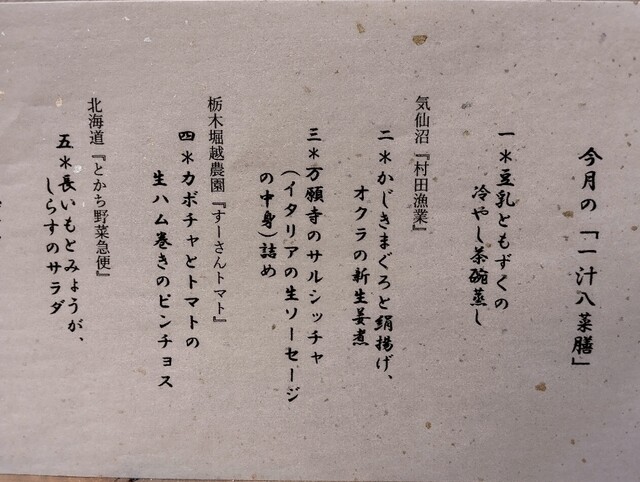 今月の「一汁八菜膳」
一＊豆乳ともずくの
冷やし茶碗蒸し
気仙沼『村田漁業』
二＊かじきまぐろと絹揚げ、
オクラの新生姜煮
三＊万願寺のサルシッチャ
(イタリアの生ソーセージ
の中身)詰め
栃木堀越農園『すーさんトマト』
四＊カボチャとトマトの
生ハム巻きのピンチョス
北海道『とかち野菜急便』
五＊長いもとみょうが、
しらすのサラダ